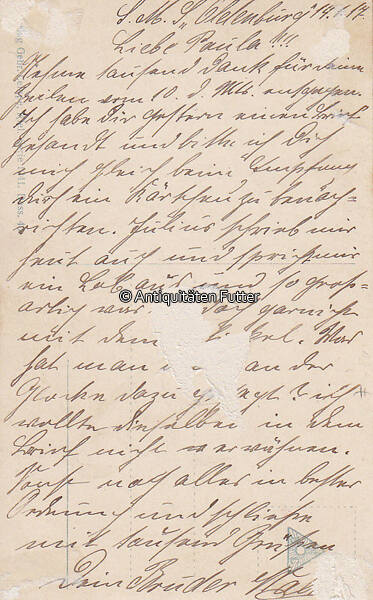 S. M. S. „Oldenburg" 14.1.17.
Liebe Paula!!!
Nehme tausend Dank für deine
Zeilen vom 10. d. Mts. entgegen.
Ich habe dir gestern einen Brief
gesandt und bitte ich Dich
mich gleich beim Empfang
durch ein Kärtchen zu benach-
richten. Julius schrieb mir
heut auch und spricht mir
ein Lob aus und so groß-
artig war das garnicht
mit dem Artikel. Was
hat man an der
Glocke dazu gesagt? ich
wollte dieselben in dem
Brief nicht erwähnen.
Sonst noch alles in bester
Ordnung und schließe
mit tausend Grüßen
Dein Bruder
© Antiquitäten Futter